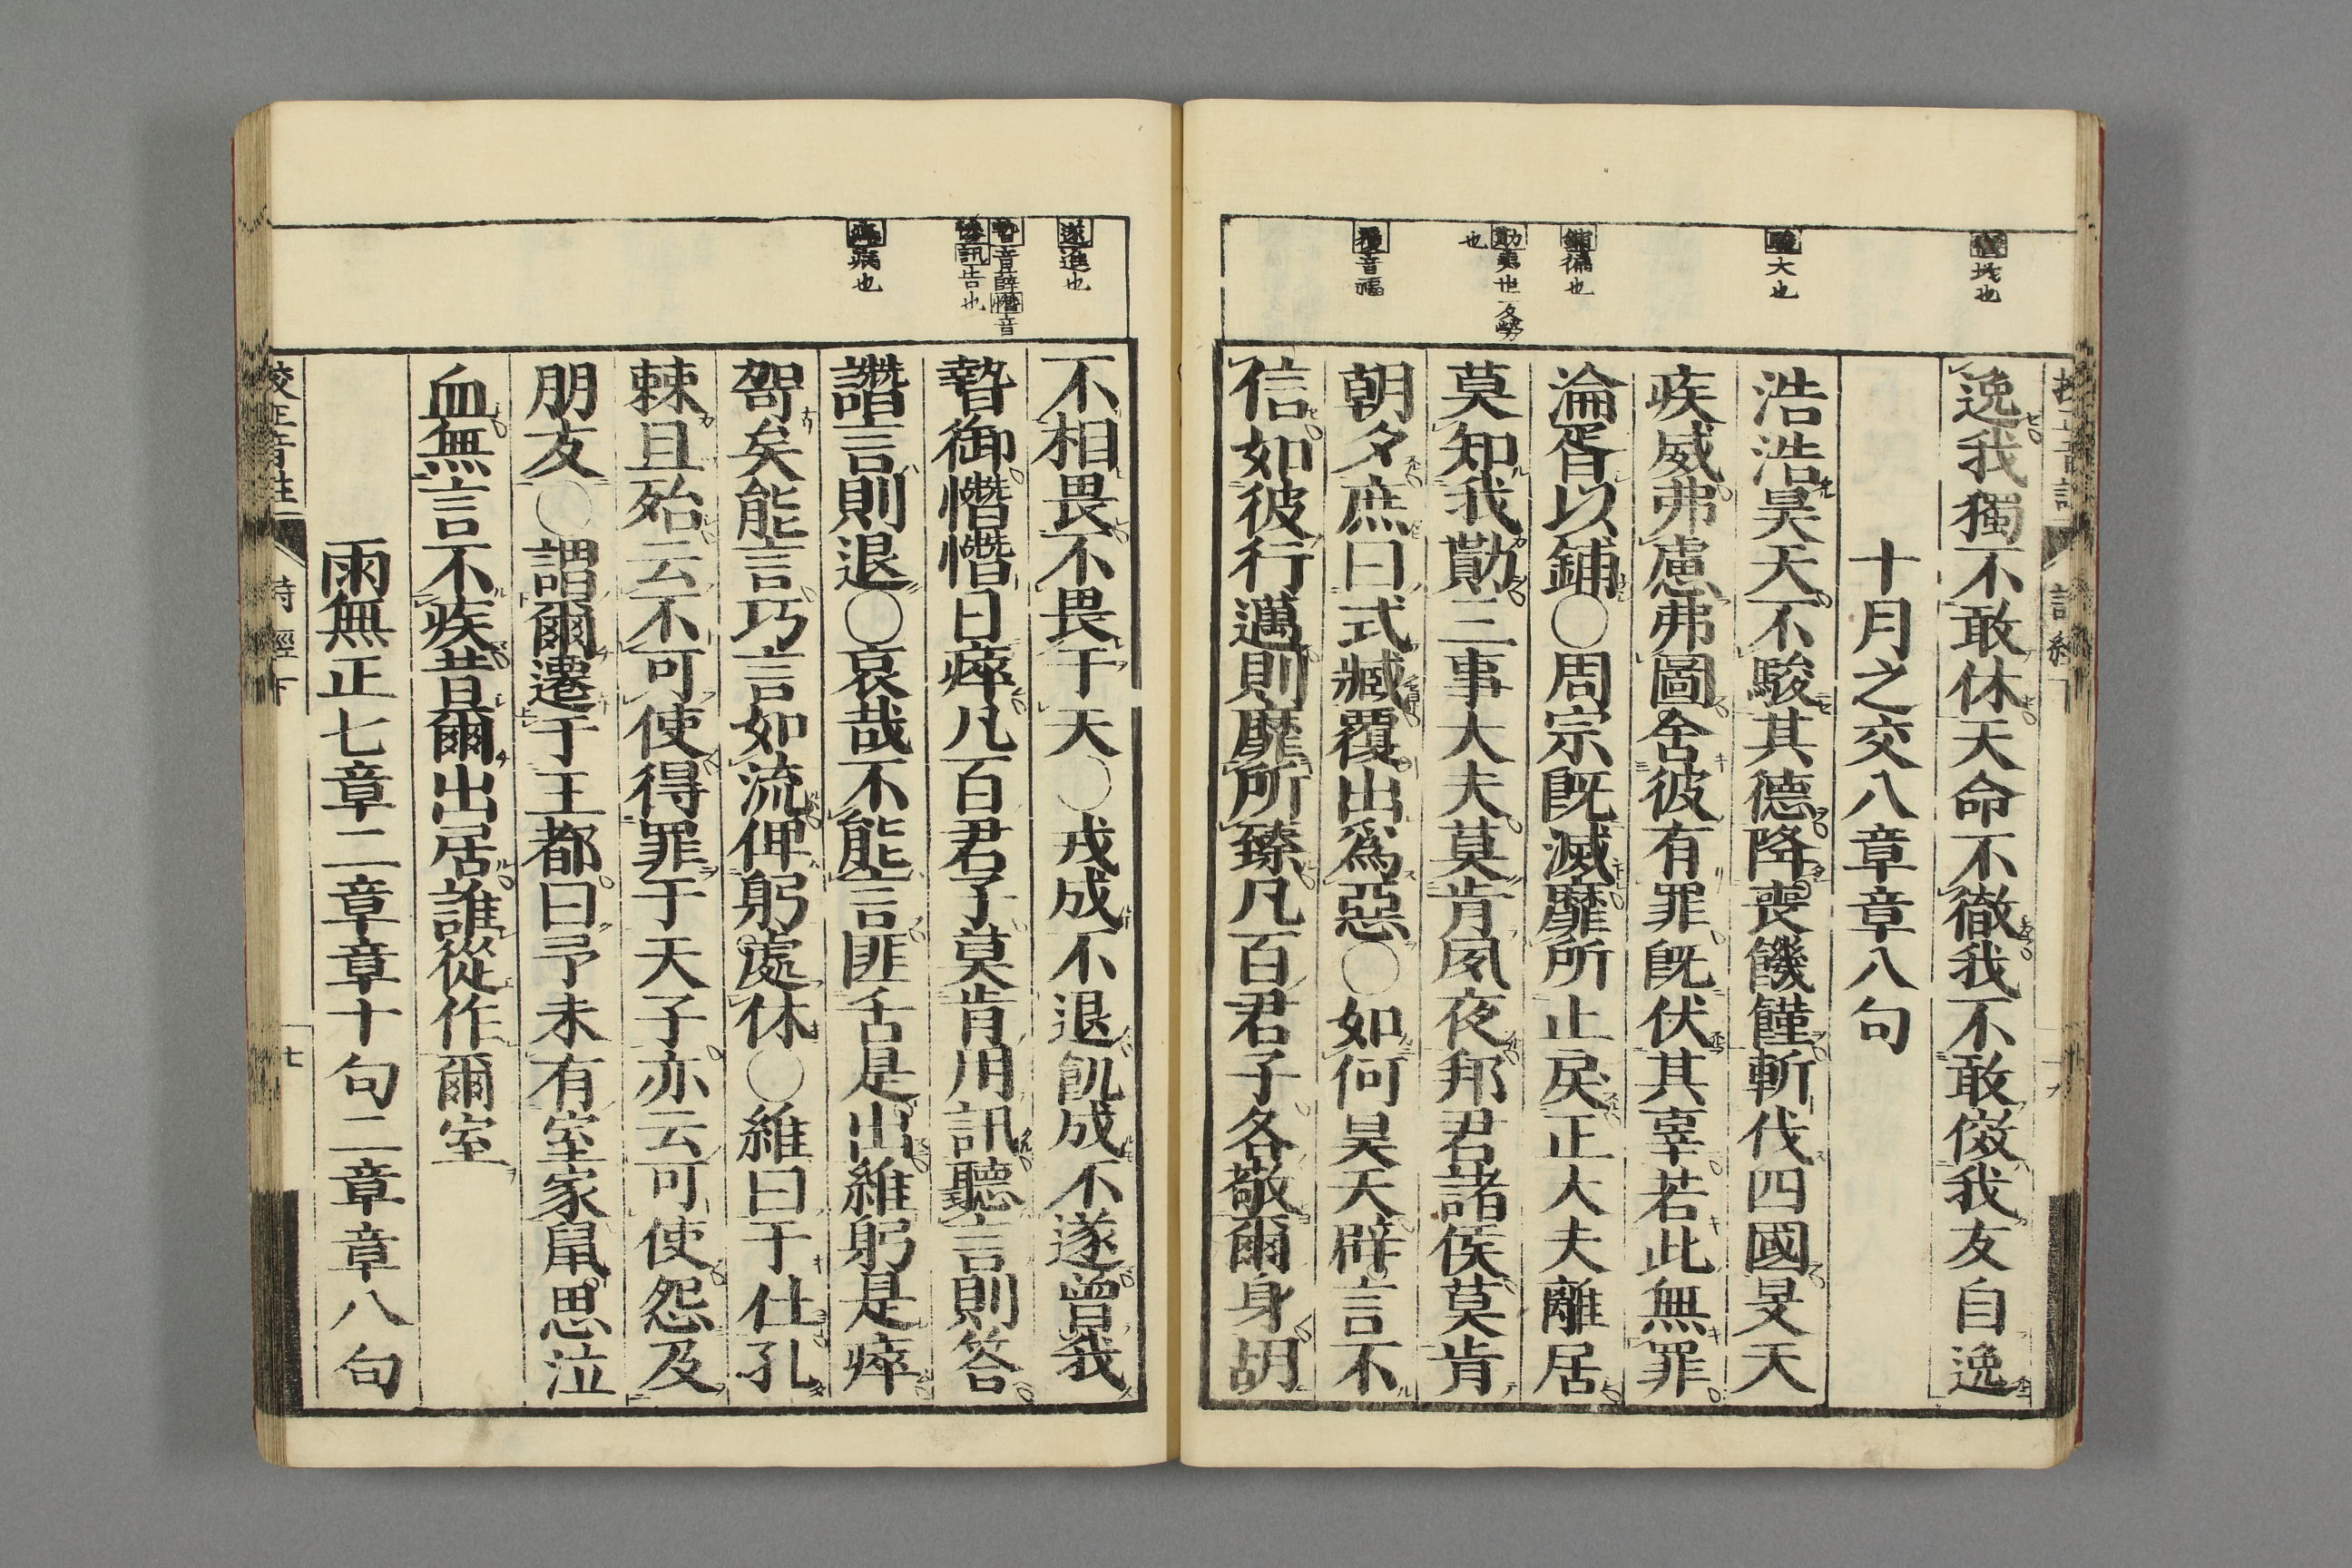 逸我獨不敢休天命不徹我不敢傚我友自逸
十月之交八章章八句
浩浩昊天不駿其德降喪饑饉斬伐四國旻天
疾威弗慮弗圖舍彼有罪既伏其辜若此無罪
淪胥以鋪○周宗既滅靡所止戾正大夫離居
莫知我勩三事大夫莫肯夙夜邦君諸侯莫肯
朝夕庶曰式臧覆出爲惡○如何昊天辟言不
信如彼行邁則靡所臻凡百君子各敬爾身胡
大也
鋪徧也
勩夷世
也
音福
不相畏不畏于天○戎成不退飢成不遂曾我
暬御憯憯日瘁凡百君子莫肯用訊聽言則答
譖言則退○哀哉不能言匪舌是出維躬是瘁
哿矣能言巧言如流俾躬處休○維曰于仕孔
棘且殆云不可使得罪于天子亦云可使怨及
朋友○謂爾遷于王都曰予未有室家鼠思泣
血無言不疾昔爾出居誰從作爾室
雨無正七章二章章十句二章章八句
遂進也
音薛憯音
訊告也
病也
校正音註
詩經下
七